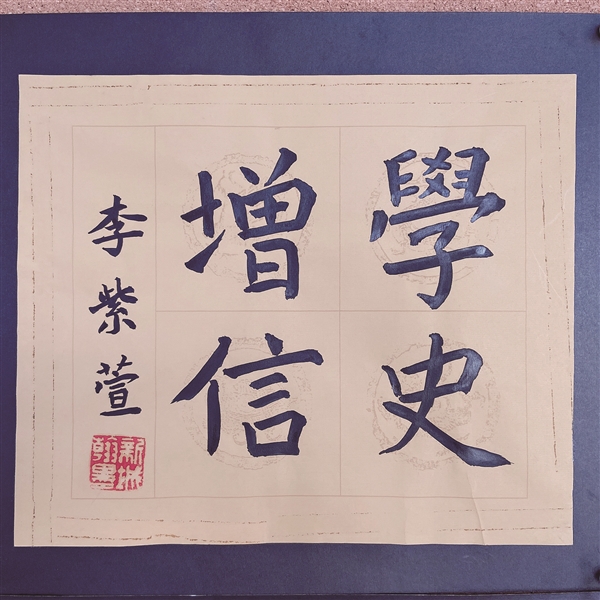 學史
增信
李紫萱
新
翰墨